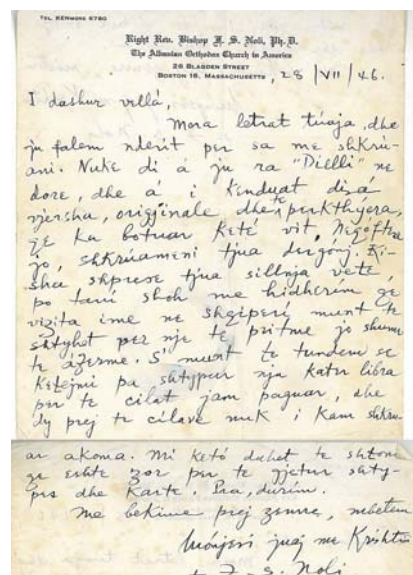 TEL. KENMORE 6780
Right Rev. Bishop F. S. Noli, Ph. D.
The Albanian Orthodox Church in America
26 BLAGDEN STREET
BOSTON 16, MASSACHUSETTS, 28/VII/46.
I dashur vëllá,
Mora letrat túaja, dhe
ju falem nderit per sa me shkrú-
ani. Nuke di á ju ra "Dielli" ne
dore, dhe á i kenduat dizá
vjersha, origjinale dhe te perkthyera,
qe ka botuar keté vit. Neqoftse
jo, shkrúameni tjua dergónj. Ki-
sha shprese tjua sillnja vete,
po tani shoh me hidherím qe
vizita ime ne Shqiperi munt te
shtyhet per nje te pritme jo shume
te aferme. S' munt te tundem se
ketejmi pa shtypur nja kater libra
per te cilat jam paguar, dhe
dy prej te cilave nuk i kam shkru-
ar akoma. Mi ketó duhet te shtone
qe eshte zor per te gjetur shty-
pes dhe karte. Pra, durim.
Me bekime prej zemre, mbetem
juaj me Krishtin
+ F. S. Noli